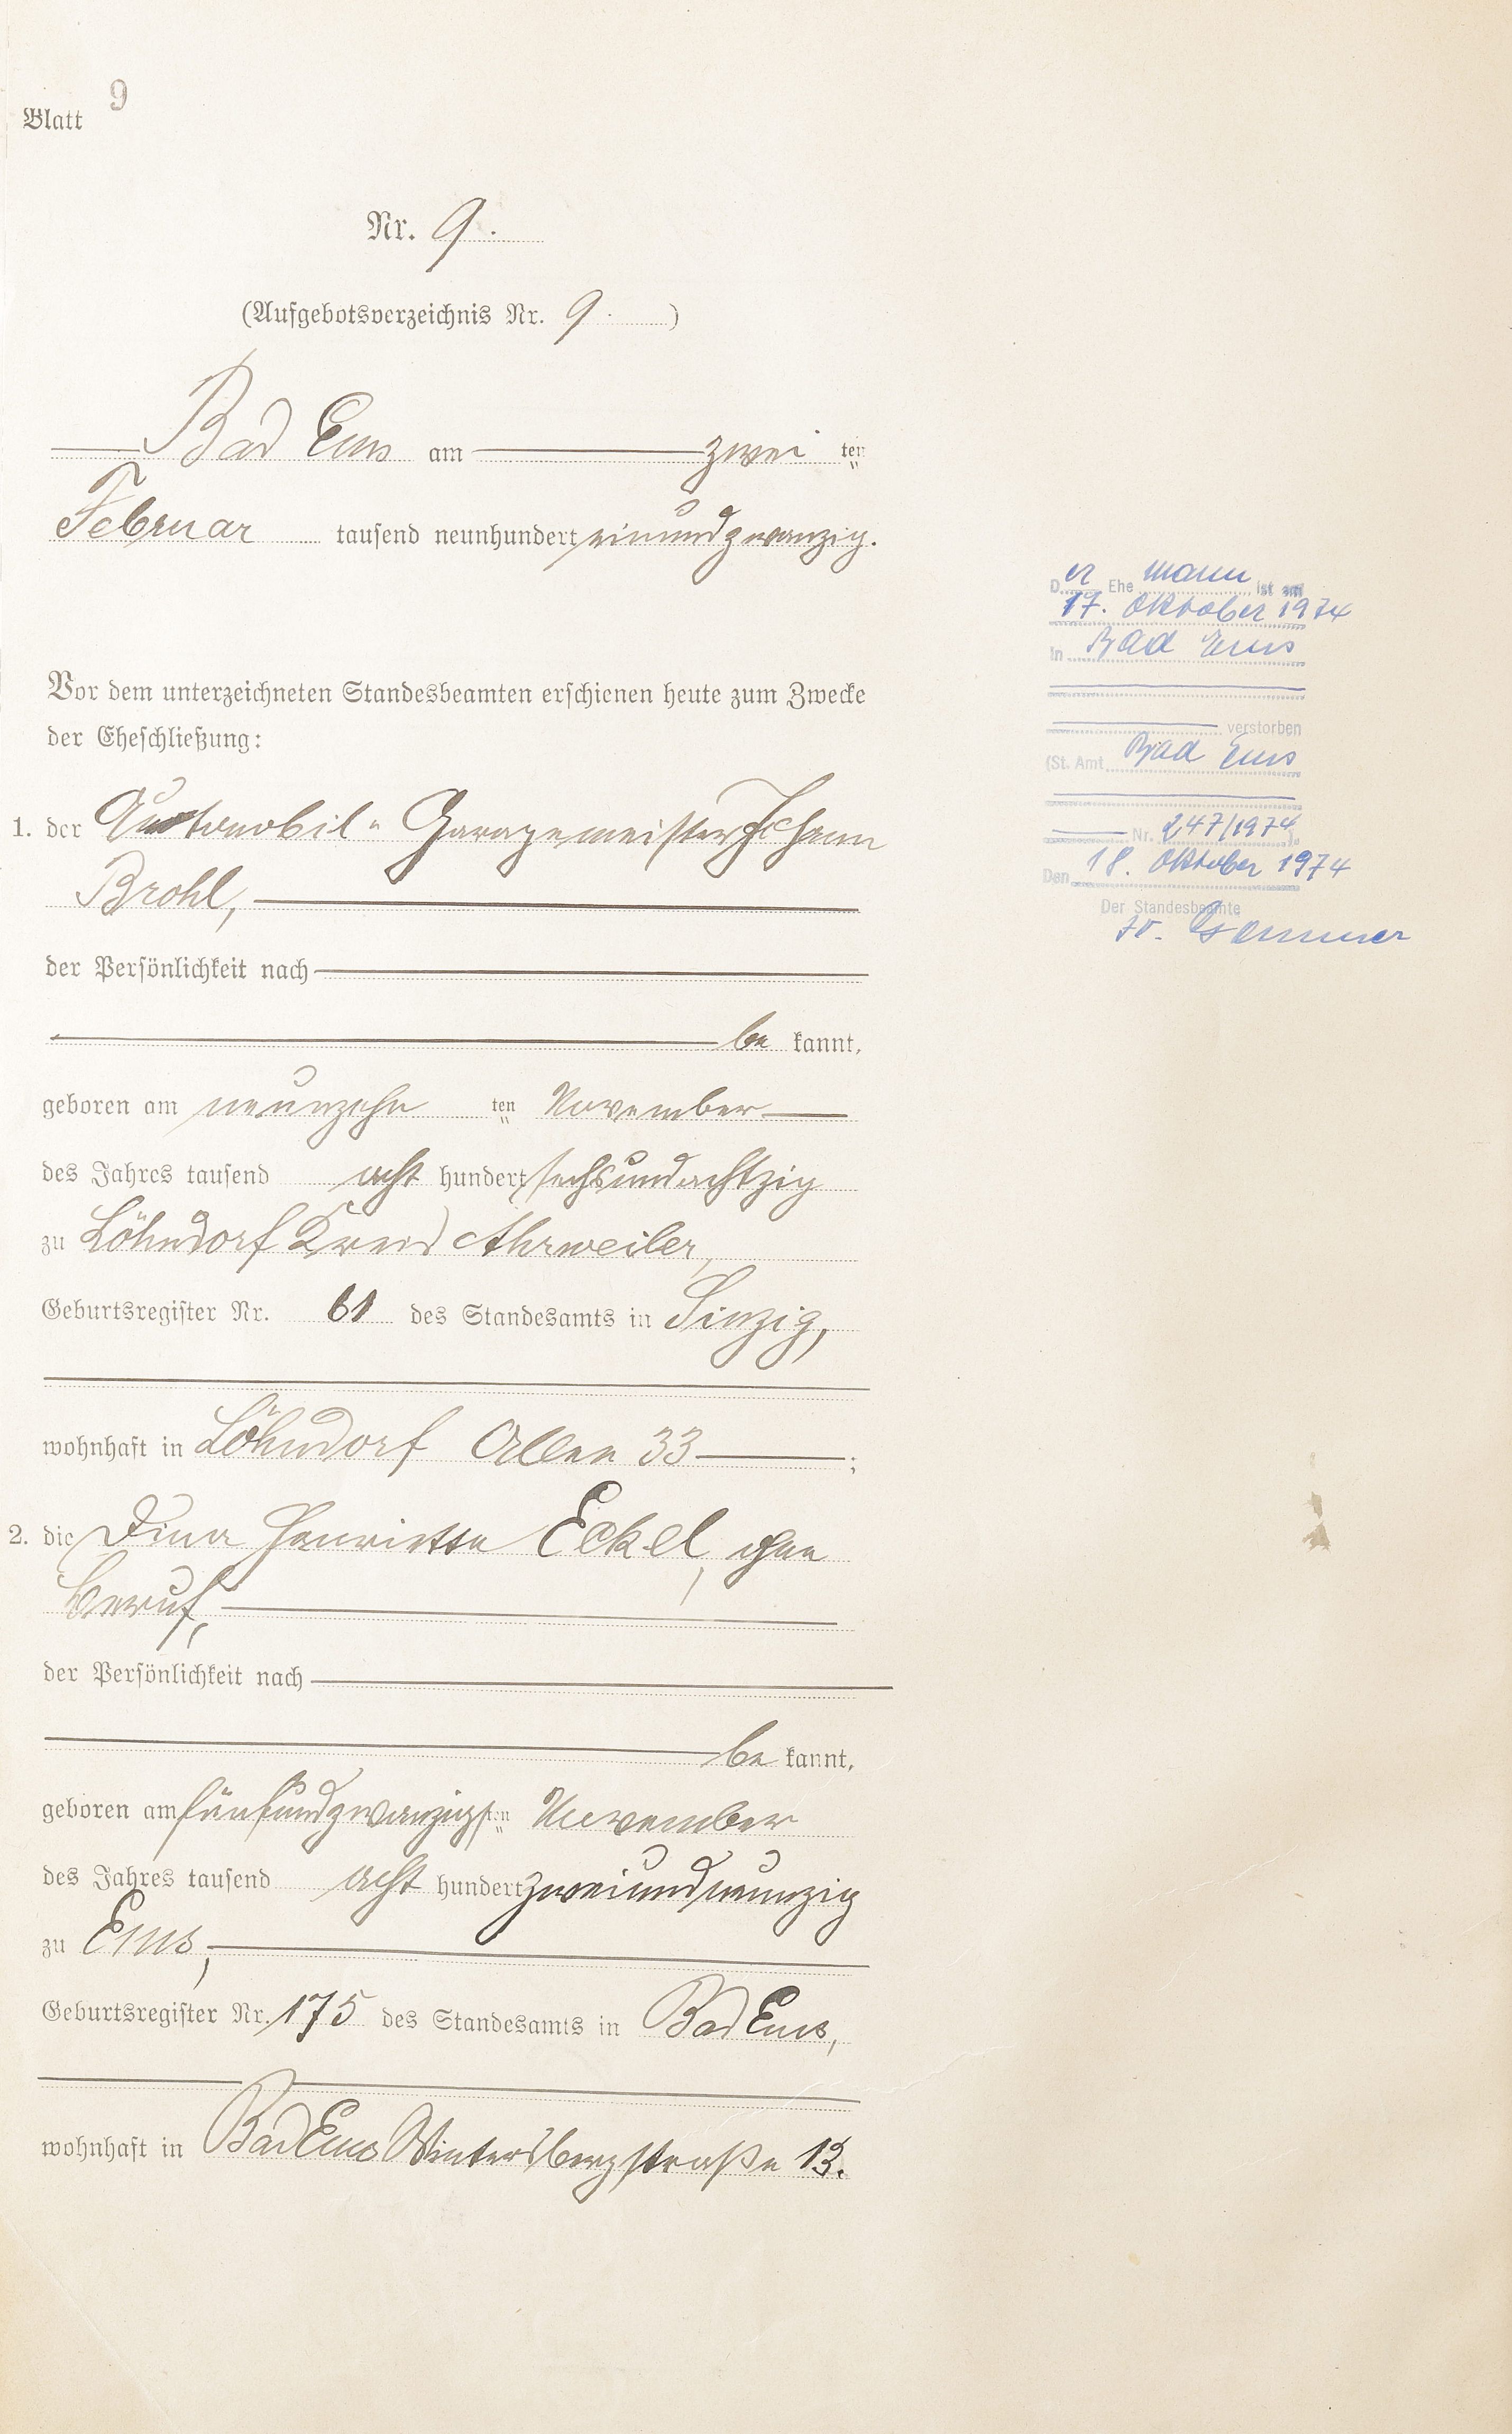 Blatt 9
Nr. 9.
(Aufgebotsverzeichnis Nr. 9. )
Bad Ems am zwei ten
Februar tausend neunhundert einundzwanzig.
Vor dem unterzeichneten Standesbeamten erschienen heute zum Zwecke
der Eheschließung:
1. der Automobil-Garagemeister Johann
Brohl,
der Persönlichkeit nach
be kannt,
geboren am neunzehn ten November
des Jahres tausend acht hundert sechsundachtzig
zu Löhndorf Kreis Ahrweiler,
Geburtsregister Nr. 61 des Standesamts in Sinzig,
wohnhaft in Löhndorf Allee 33 ;
2. die Dina Henriette Eckel, ohne
Beruf,
der Persönlichkeit nach
be kannt,
geboren am fünfundzwanzigsten November
des Jahres tausend acht hundert zweiundneunzig
zu Ems,
Geburtsregister Nr. 175 des Standesamts in Bad Ems,
wohnhaft in Bad Ems Wintersbergstraße 13.
Der Ehemann ist am
17. Oktober 1974
in Bad Ems
verstorben
(St. Amt Bad Ems
Nr. 247/1974).
Den 18. Oktober 1974
Der Standesbeamte